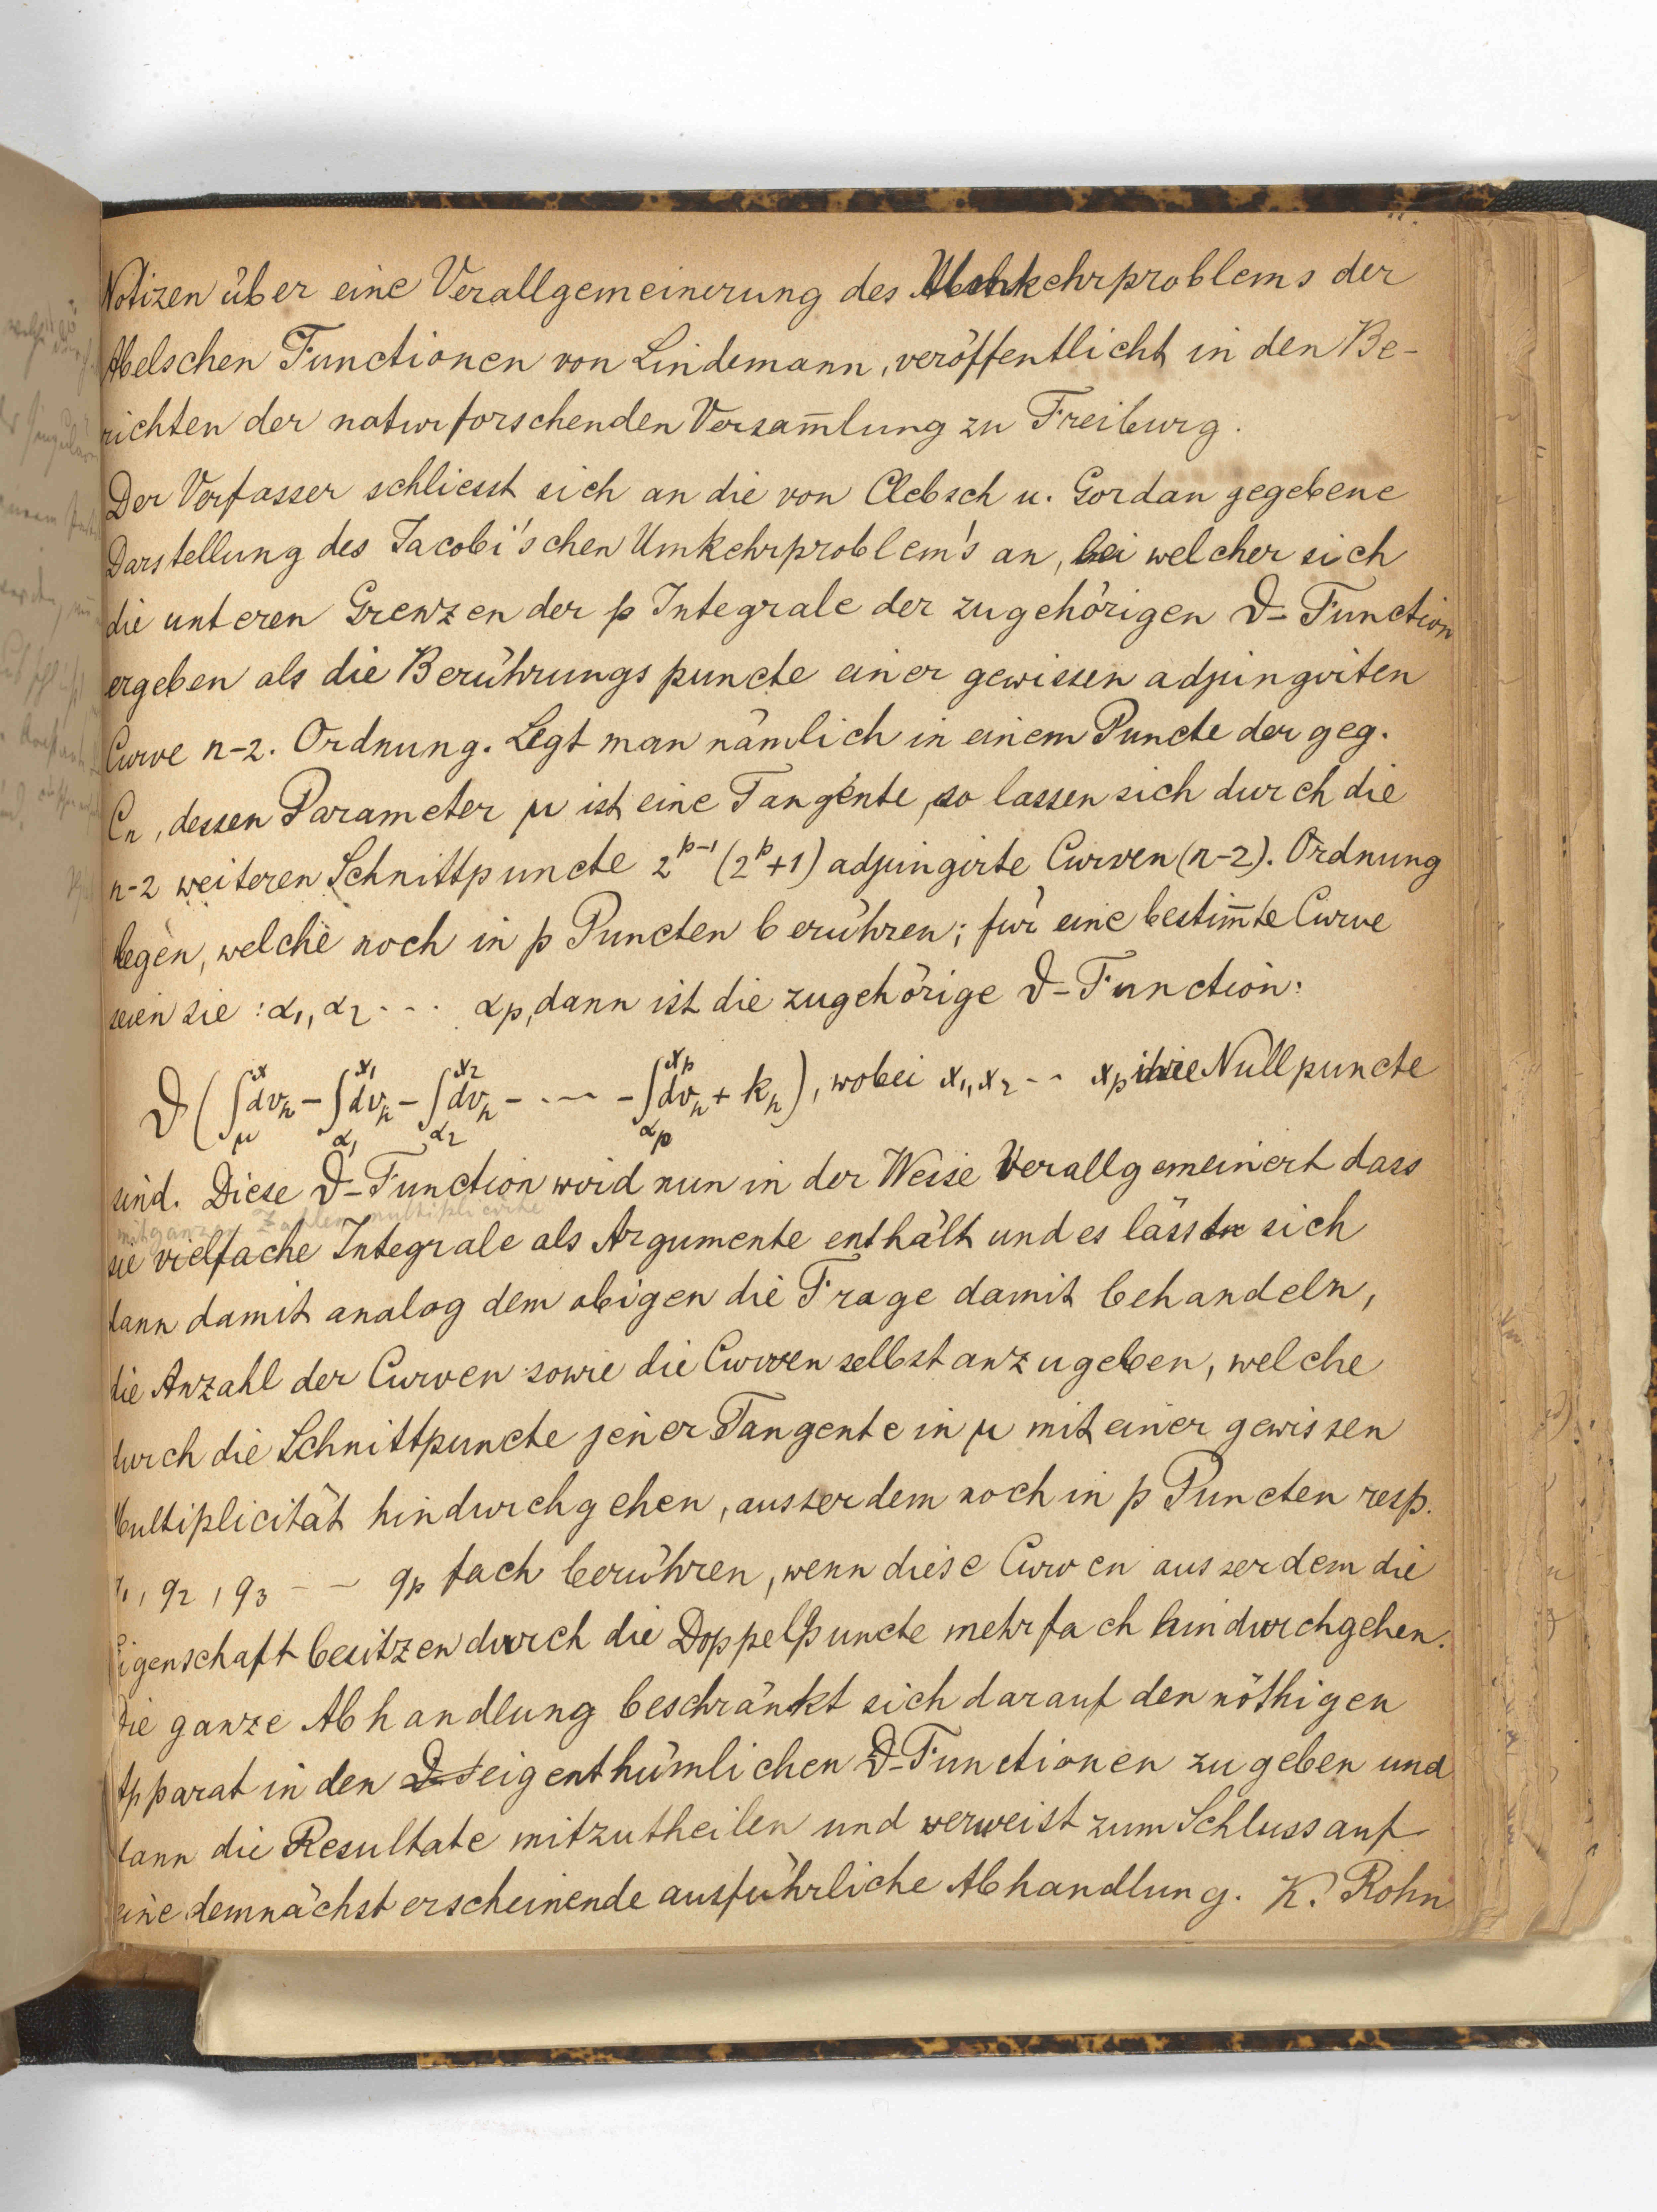 Notizen über eine Verallgemeinerung des Umkehrproblems der
Abelschen Functionen von Lindemann, veröffentlicht in den Be-
richten der naturforschenden Versam̅lung zu Freiburg.
Der Verfasser schliesst sich an die von Clebsch u. Gordan gegebene
Darstellung des Jacobi'schen Umkehrproblem's an, bei welcher sich
die unteren Grenzen der p Integrale der zugehörigen ϑ-Function
ergeben als die Berührungspuncte einer gewissen adjungirten
Curve n-2. Ordnung. Legt man nämlich in einem Puncte der geg.
Cn, dessen Parameter μ ist eine Tangente, so lassen sich durch die
n-2 weiteren Schnittpuncte 2^{p-1}(2^p+1) adjungirte Curven (n-2). Ordnung
legen, welche noch in p Puncten berühren; für eine bestim̅te Curve
seien sie: α₁, α₂ --- αp, dann ist die zugehörige ϑ-Function:
ϑ(∫_μ^x dv_h - ∫_{α₁}^{x₁} dv_h - ∫_{α₂}^{x₂} dv_h - ... - ∫_{αp}^{xp} dv_h + k_h), wobei x₁, x₂ -- xp ihre Nullpuncte
sind. Diese ϑ-Function wird nun in der Weise Verallgemeinert dass
mit ganzen Zahlen multiplicirte
sie vielfache Integrale als Argumente enthält und es lässt sich
dann damit analog dem obigen die Frage damit behandeln,
die Anzahl der Curven sowie die Curven selbst anzugeben, welche
durch die Schnittpuncte jener Tangente in μ mit einer gewissen
Multiplicität hindurchgehen, ausserdem noch in p Puncten resp.
q₁, q₂, q₃ -- qp fach berühren, wenn diese Curven ausserdem die
Eigenschaft besitzen durch die Doppelpuncte mehrfach hindurchgehen.
Die ganze Abhandlung beschränkt sich darauf den nöthigen
Apparat in den eigenthümlichen ϑ-Functionen zu geben und
dann die Resultate mitzutheilen und verweist zum Schluss auf
eine demnächst erscheinende ausführliche Abhandlung. K. Rohn